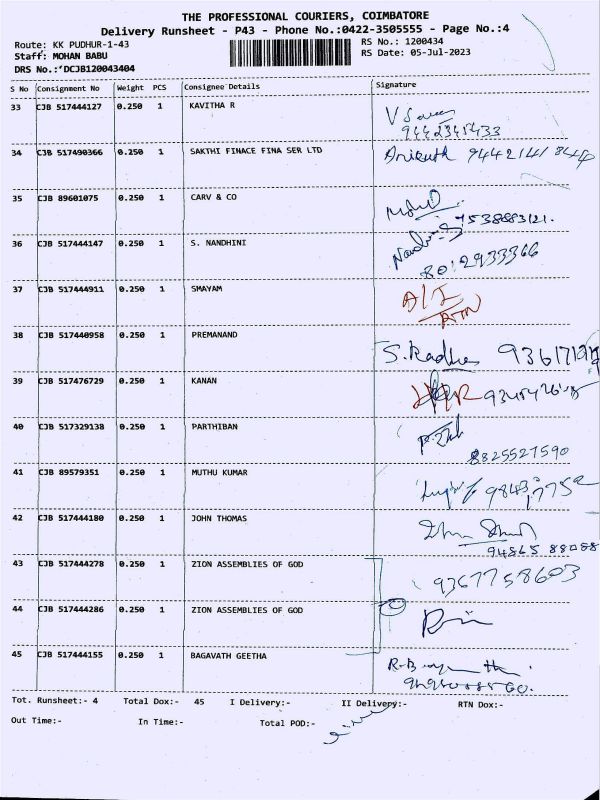 THE PROFESSIONAL COURIERS, COIMBATORE
Delivery Runsheet - P43 - Phone No.:0422-3505555 - Page No.:4
Route: KK PUDHUR-1-43 RS No.: 1200434
Staff: MOHAN BABU RS Date: 05-Jul-2023
DRS No.:'DCJB120043404
S No Consignment No Weight PCS Consignee Details Signature
33 CJB 517444127 0.250 1 KAVITHA R
9442345433
34 CJB 517490366 0.250 1 SAKTHI FINACE FINA SER LTD
35 CJB 89601075 0.250 1 CARV & CO
7538883121.
36 CJB 517444147 0.250 1 S. NANDHINI
8012933366
37 CJB 517444911 0.250 1 SMAYAM A/I
RTN
38 CJB 517440958 0.250 1 PREMANAND S. Radha
39 CJB 517476729 0.250 1 KANAN
40 CJB 517329138 0.250 1 PARTHIBAN
8825527590
41 CJB 89579351 0.250 1 MUTHU KUMAR
42 CJB 517444180 0.250 1 JOHN THOMAS
94865 88088
43 CJB 517444278 0.250 1 ZION ASSEMBLIES OF GOD 9367758603
44 CJB 517444286 0.250 1 ZION ASSEMBLIES OF GOD
45 CJB 517444155 0.250 1 BAGAVATH GEETHA
Tot. Runsheet:- 4 Total Dox:- 45 I Delivery:- II Delivery:- RTN Dox:-
Out Time:- In Time:- Total POD:-